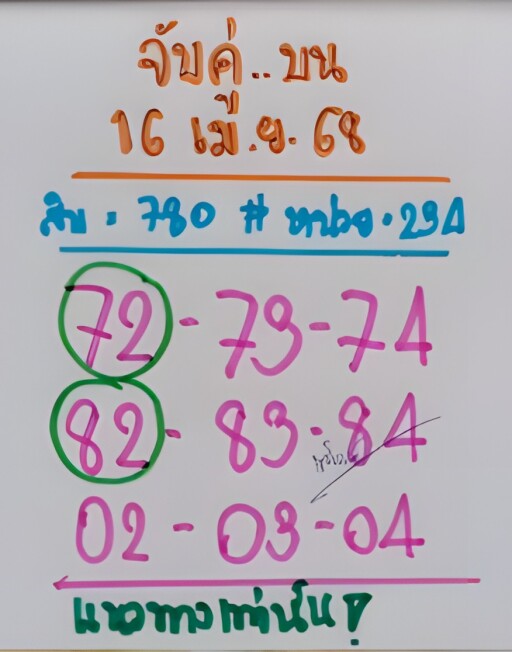 จับคู่..บน
16 เม.ย. 68
สิบ = 780 # หน่วย = 234
72 - 73 - 74
82 - 83 - 84
02 - 03 - 04
แนวทางเท่านั้น!